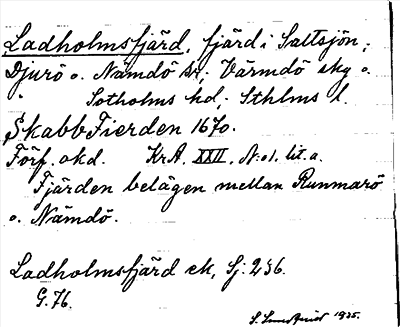 Ladholmsfjärd, fjärd i Saltsjön;
Djurö o. Nämdö sr; Värmdö sky o.
Sotholms hd; Sthlms l.
Skabb Fierden 1670.
Förf. okd. KrA. XXII. N:o1. lit. a.
Fjärden belägen mellan Runmarö
o. Nämdö.
Ladholmsfjärd ek, Sj: 236.
G. 76.
S. 1935.